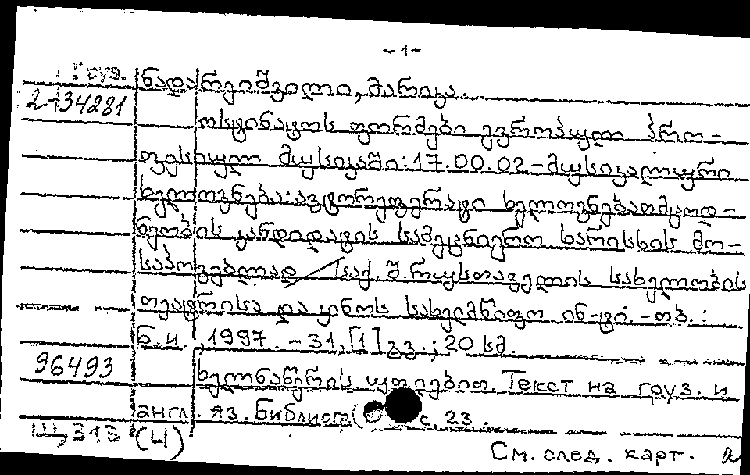 -1-
Груз. ნადარეიშვილი, მარიკა.
2-34281
ოსტინატოს ფორმები ევროპულ პრო-
ფესიულ მუსიკაში: 17.00.02 - მუსიკალური
ხელოვნება: ავტორეფერატი ხელოვნებათმცოდ-
ნეობის კანდიდატის სამეცნიერო ხარისხის მო-
საპოვებლად / საქ. შ. რუსთაველის სახელობის
თეატრისა და კინოს სახელმწიფო ინ-ტი. - თბ.:
ნ. ი., 1997. - 31, [1] გვ.; 20 სმ.
96493
ხელნაწერის უფლებით. Текст на груз. и
англ. яз. Библиогр с. 23
Щ,313 (4)
См. след. карт.